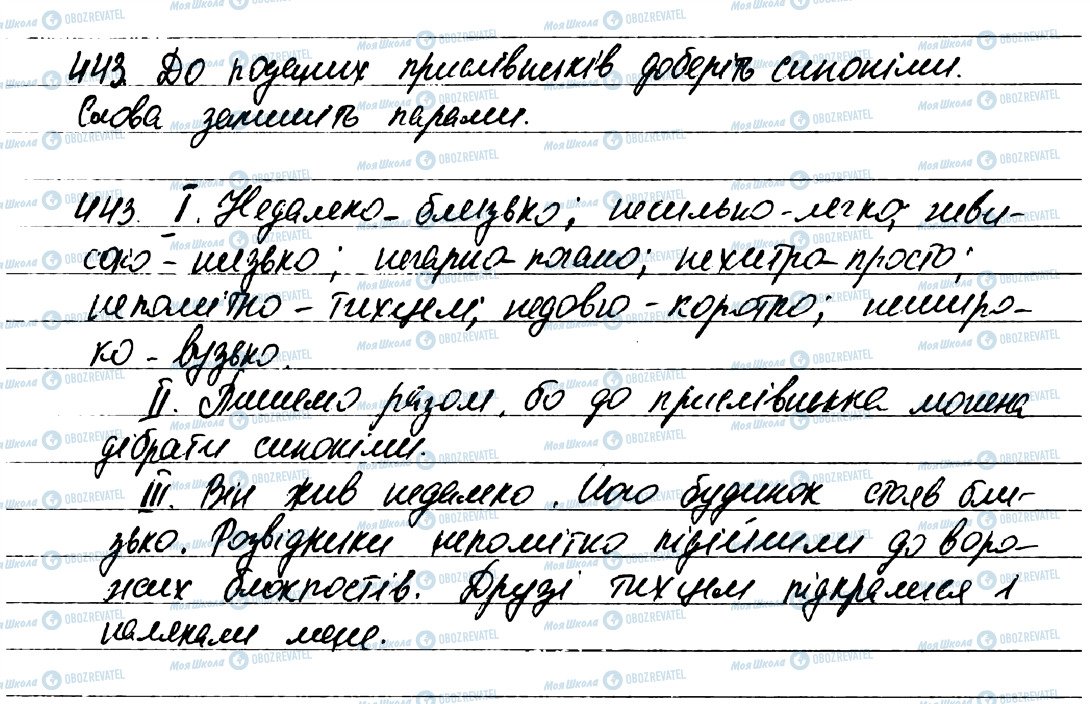 443. До поданих прислівників доберіть синоніми.
Слова запишіть парами.
443. I. Недалеко - близько; несильно - легко; неви-
соко - низько; негарно - погано; нехитро - просто;
непомітно - тихцем; недовго - коротко; неширо-
ко - вузько.
II. Пишемо разом, бо до прислівника можна
дібрати синоніми.
III. Він жив недалеко. Його будинок стояв бли-
зько. Розвідники непомітно підійшли до воро-
жих блокпостів. Друзі тихцем підкралися і
налякали мене.